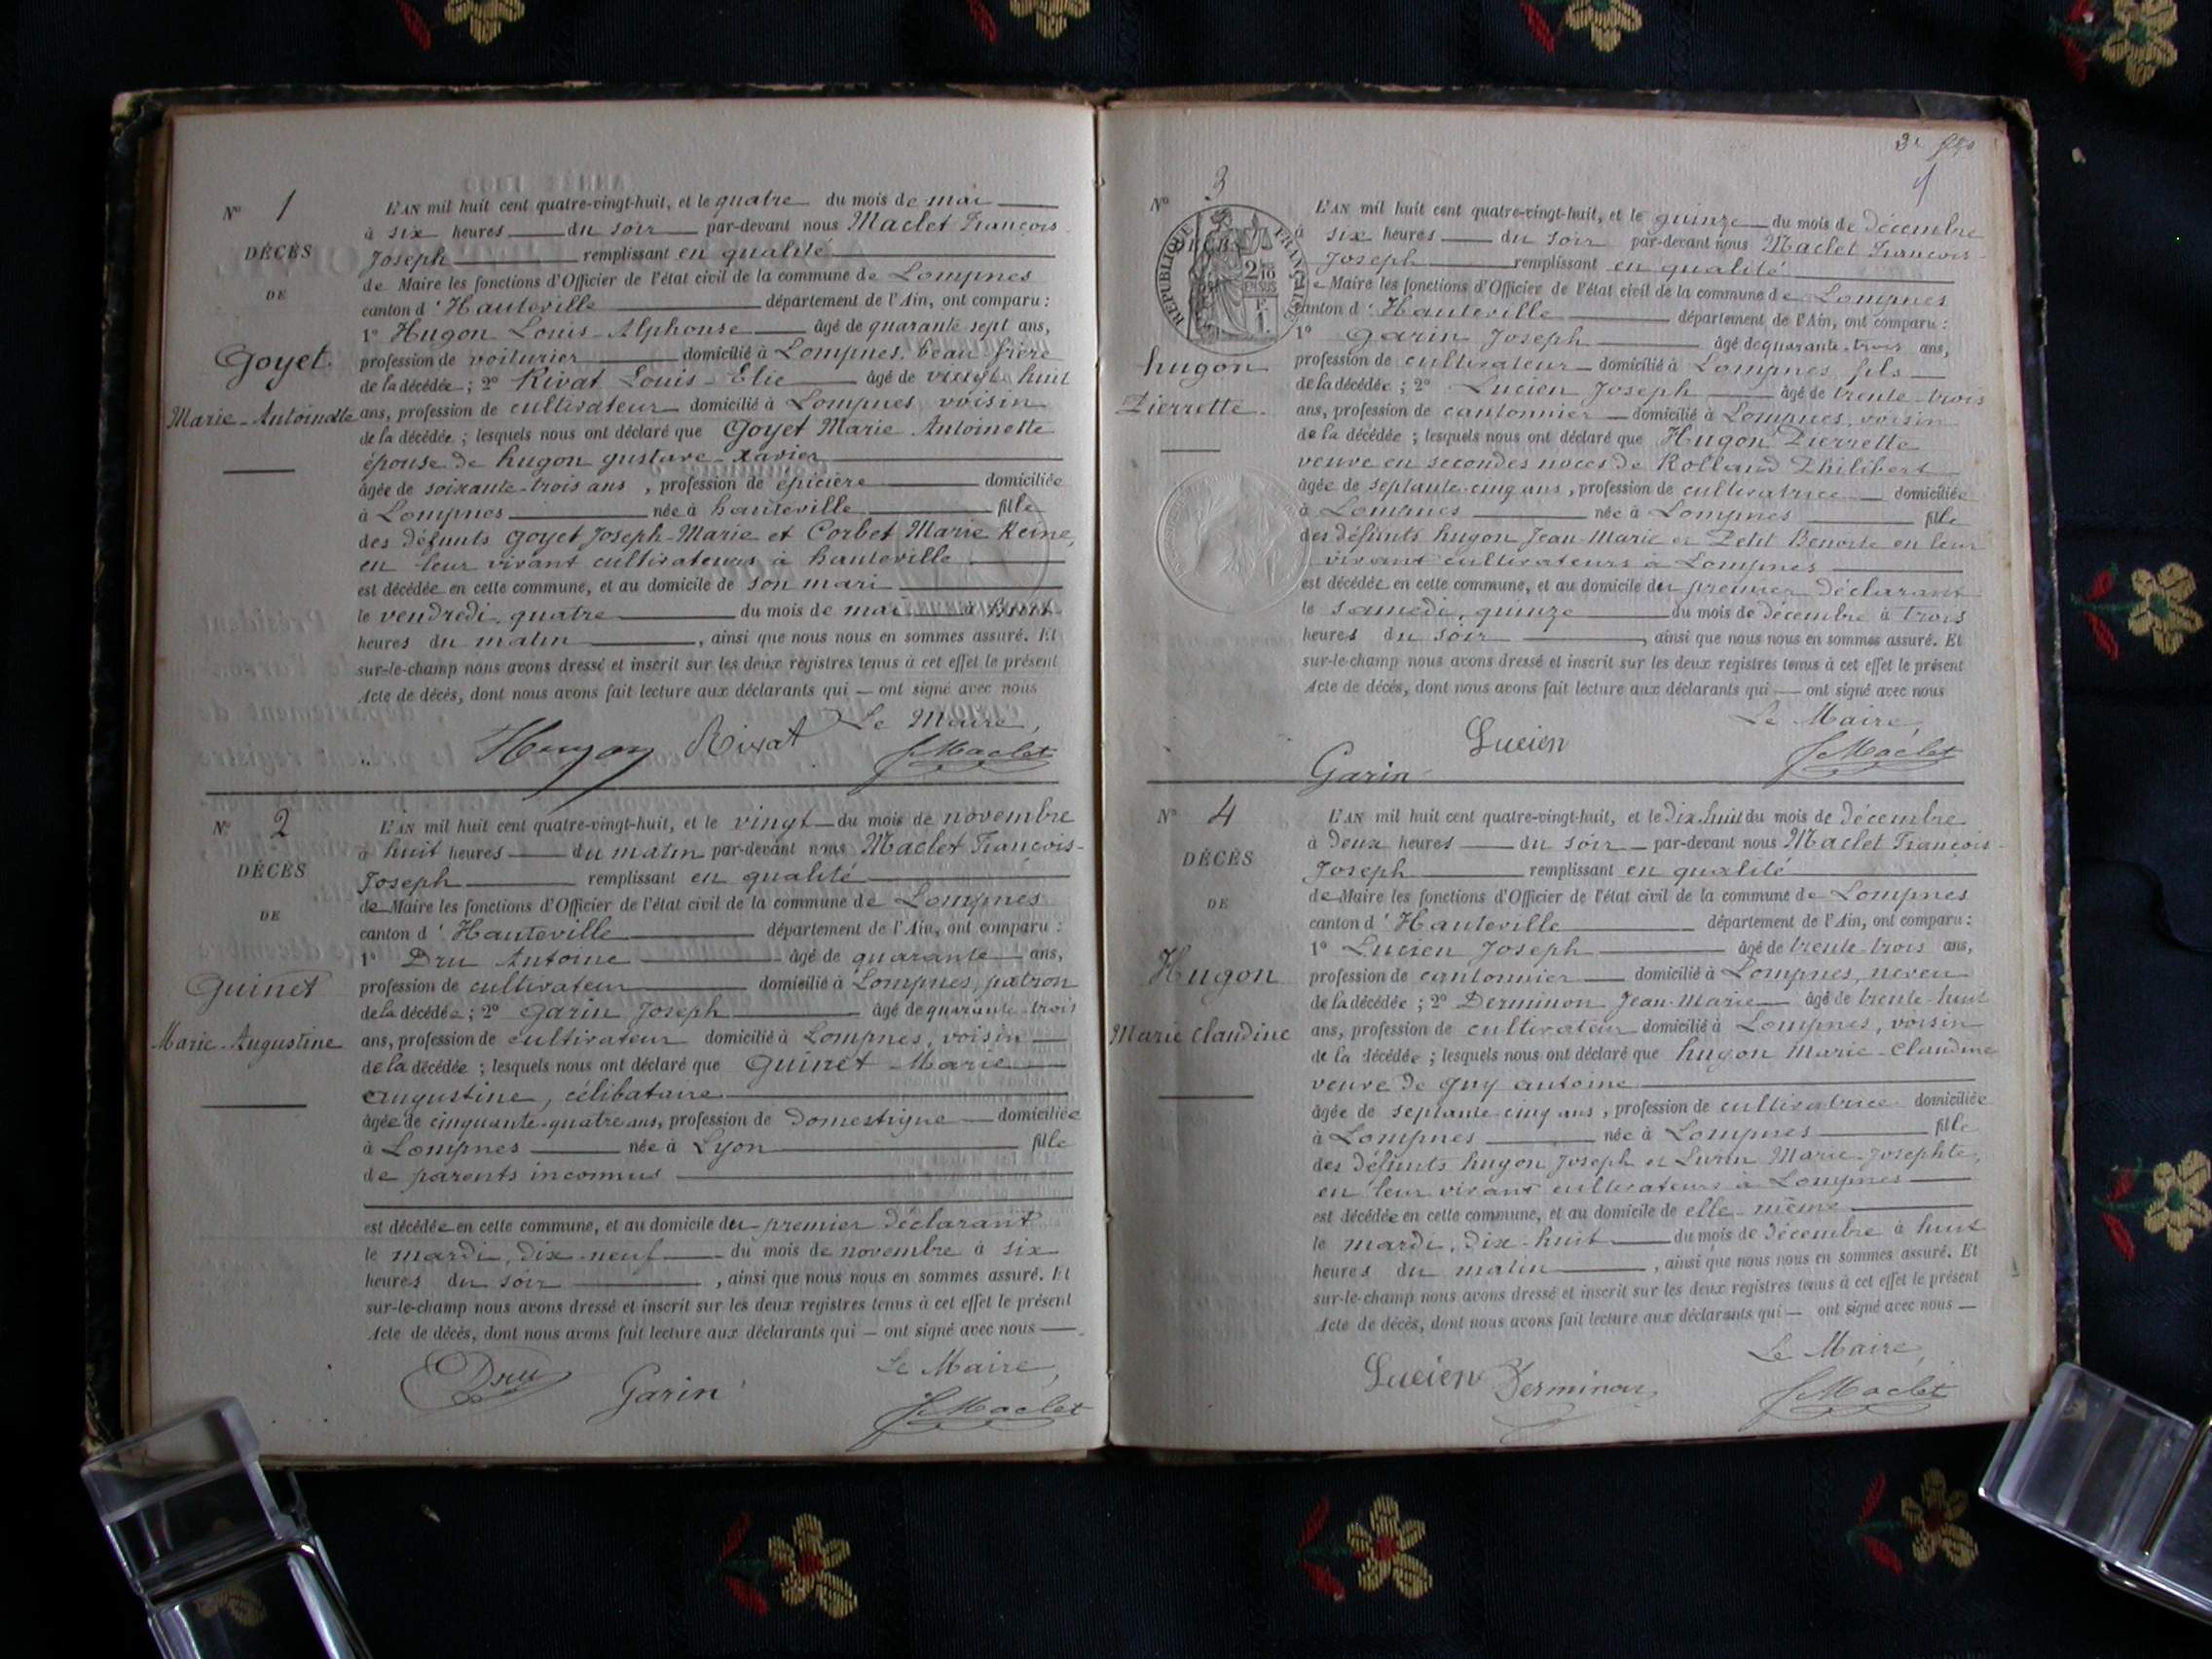 N° 1
DÉCÈS
DE
Goyet
Marie-Antoinette
L'AN mil huit cent quatre-vingt-huit, et le quatre du mois de mai
à six heures du soir par-devant nous Maclet François
Joseph remplissant en qualité
de Maire les fonctions d'Officier de l'état civil de la commune de Lompnes
canton d'Hauteville département de l'Ain, ont comparu :
1° Hugon Louis-Alphonse âgé de quarante sept ans,
profession de voiturier domicilié à Lompnes, beau frère
de la décédée ; 2° Rivat Louis-Elie âgé de vingt huit
ans, profession de cultivateur domicilié à Lompnes, voisin
de la décédée ; lesquels nous ont déclaré que Goyet Marie Antoinette
épouse de hugon gustave-xavier
âgée de soixante-trois ans, profession de épicière domiciliée
à Lompnes née à hauteville fille
des défunts Goyet Joseph-Marie et Corbet Marie Reine,
en leur vivant cultivateurs à hauteville
est décédée en cette commune, et au domicile de son mari
le vendredi, quatre du mois de mai à huit
heures du matin, ainsi que nous nous en sommes assuré. Et
sur-le-champ nous avons dressé et inscrit sur les deux registres tenus à cet effet le présent
Acte de décès, dont nous avons fait lecture aux déclarants qui — ont signé avec nous
Le Maire,
Hugon Rivat Maclet
N° 2
DÉCÈS
DE
Guinet
Marie-Augustine
L'AN mil huit cent quatre-vingt-huit, et le vingt du mois de novembre
à huit heures du matin par-devant nous Maclet François-
Joseph remplissant en qualité
de Maire les fonctions d'Officier de l'état civil de la commune de Lompnes
canton d'Hauteville département de l'Ain, ont comparu :
1° Dru Antoine âgé de quarante ans,
profession de cultivateur domicilié à Lompnes, patron
de la décédée ; 2° Garin Joseph âgé de quarante-trois
ans, profession de cultivateur domicilié à Lompnes, voisin
de la décédée ; lesquels nous ont déclaré que Guinet Marie
augustine, célibataire
âgée de cinquante-quatre ans, profession de Domestique domiciliée
à Lompnes née à Lyon fille
de parents inconnus
est décédée en cette commune, et au domicile du premier déclarant
le mardi, dix-neuf du mois de novembre à six
heures du soir, ainsi que nous nous en sommes assuré. Et
sur-le-champ nous avons dressé et inscrit sur les deux registres tenus à cet effet le présent
Acte de décès, dont nous avons fait lecture aux déclarants qui — ont signé avec nous
Le Maire,
Dru Garin Maclet
N° 3
RÉPUBLIQUE FRANÇAISE
2/10 EN SUS
hugon
Pierrette
L'AN mil huit cent quatre-vingt-huit, et le quinze du mois de décembre
à six heures du soir par-devant nous Maclet François-
Joseph remplissant en qualité
de Maire les fonctions d'Officier de l'état civil de la commune de Lompnes
canton d'Hauteville département de l'Ain, ont comparu :
1° Garin Joseph âgé de quarante-trois ans,
profession de cultivateur domicilié à Lompnes, fils
de la décédée ; 2° Lucien Joseph âgé de trente-trois
ans, profession de cantonnier domicilié à Lompnes, voisin
de la décédée ; lesquels nous ont déclaré que Hugon Pierrette
veuve en secondes noces de Rolland Philibert
âgée de septante-cinq ans, profession de cultivatrice domiciliée
à Lompnes née à Lompnes fille
des défunts hugon Jean Marie et Petit Benoite en leur
vivant cultivateurs à Lompnes
est décédée en cette commune, et au domicile du premier déclarant
le samedi, quinze du mois de décembre à trois
heures du soir, ainsi que nous nous en sommes assuré. Et
sur-le-champ nous avons dressé et inscrit sur les deux registres tenus à cet effet le présent
Acte de décès, dont nous avons fait lecture aux déclarants qui — ont signé avec nous
Le Maire,
Garin Lucien Maclet
N° 4
DÉCÈS
DE
Hugon
Marie Claudine
L'AN mil huit cent quatre-vingt-huit, et le dix-huit du mois de décembre
à deux heures du soir par-devant nous Maclet François-
Joseph remplissant en qualité
de Maire les fonctions d'Officier de l'état civil de la commune de Lompnes
canton d'Hauteville département de l'Ain, ont comparu :
1° Lucien Joseph âgé de trente-trois ans,
profession de cantonnier domicilié à Lompnes, neveu
de la décédée ; 2° Derminon Jean-Marie âgé de trente-huit
ans, profession de cultivateur domicilié à Lompnes, voisin
de la décédée ; lesquels nous ont déclaré que hugon Marie-Claudine
veuve de guy antoine
âgée de septante cinq ans, profession de cultivatrice domiciliée
à Lompnes née à Lompnes fille
des défunts hugon Joseph et Marie-Josephte,
en leur vivant cultivateurs à Lompnes
est décédée en cette commune, et au domicile de elle-même
le mardi, dix-huit du mois de décembre à huit
heures du matin, ainsi que nous nous en sommes assuré. Et
sur-le-champ nous avons dressé et inscrit sur les deux registres tenus à cet effet le présent
Acte de décès, dont nous avons fait lecture aux déclarants qui — ont signé avec nous
Le Maire,
Lucien Derminon Maclet